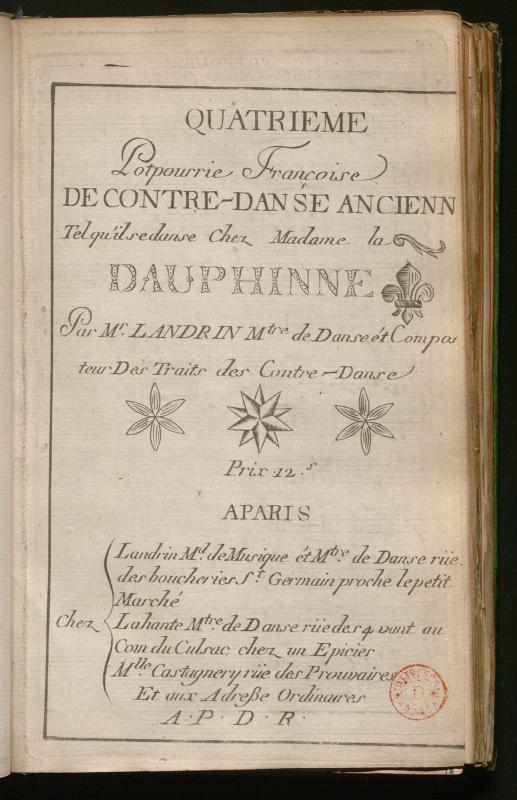 QUATRIEME
Potpourrie Françoise
DE CONTRE-DANSE ANCIENN
Tel qu'il se danse Chez Madame la
DAUPHINNE
Par Mr. LANDRIN Mtre de Danse ét Compos
teur Des Traits des Contre-Danse
Prix 12.s
A PARIS
Landrin Md. de Musique ét Mtre. de Danse rüe
des boucheries St. Germain proche le petit
Marché
Chez Lahante Mtre. de Danse rüe des 4 vant au
Coin du Culsac chez un Epicier
Mlle Castagnery rüe des Prouvaires
Et aux Adreße Ordinaires
A. P. D. R.